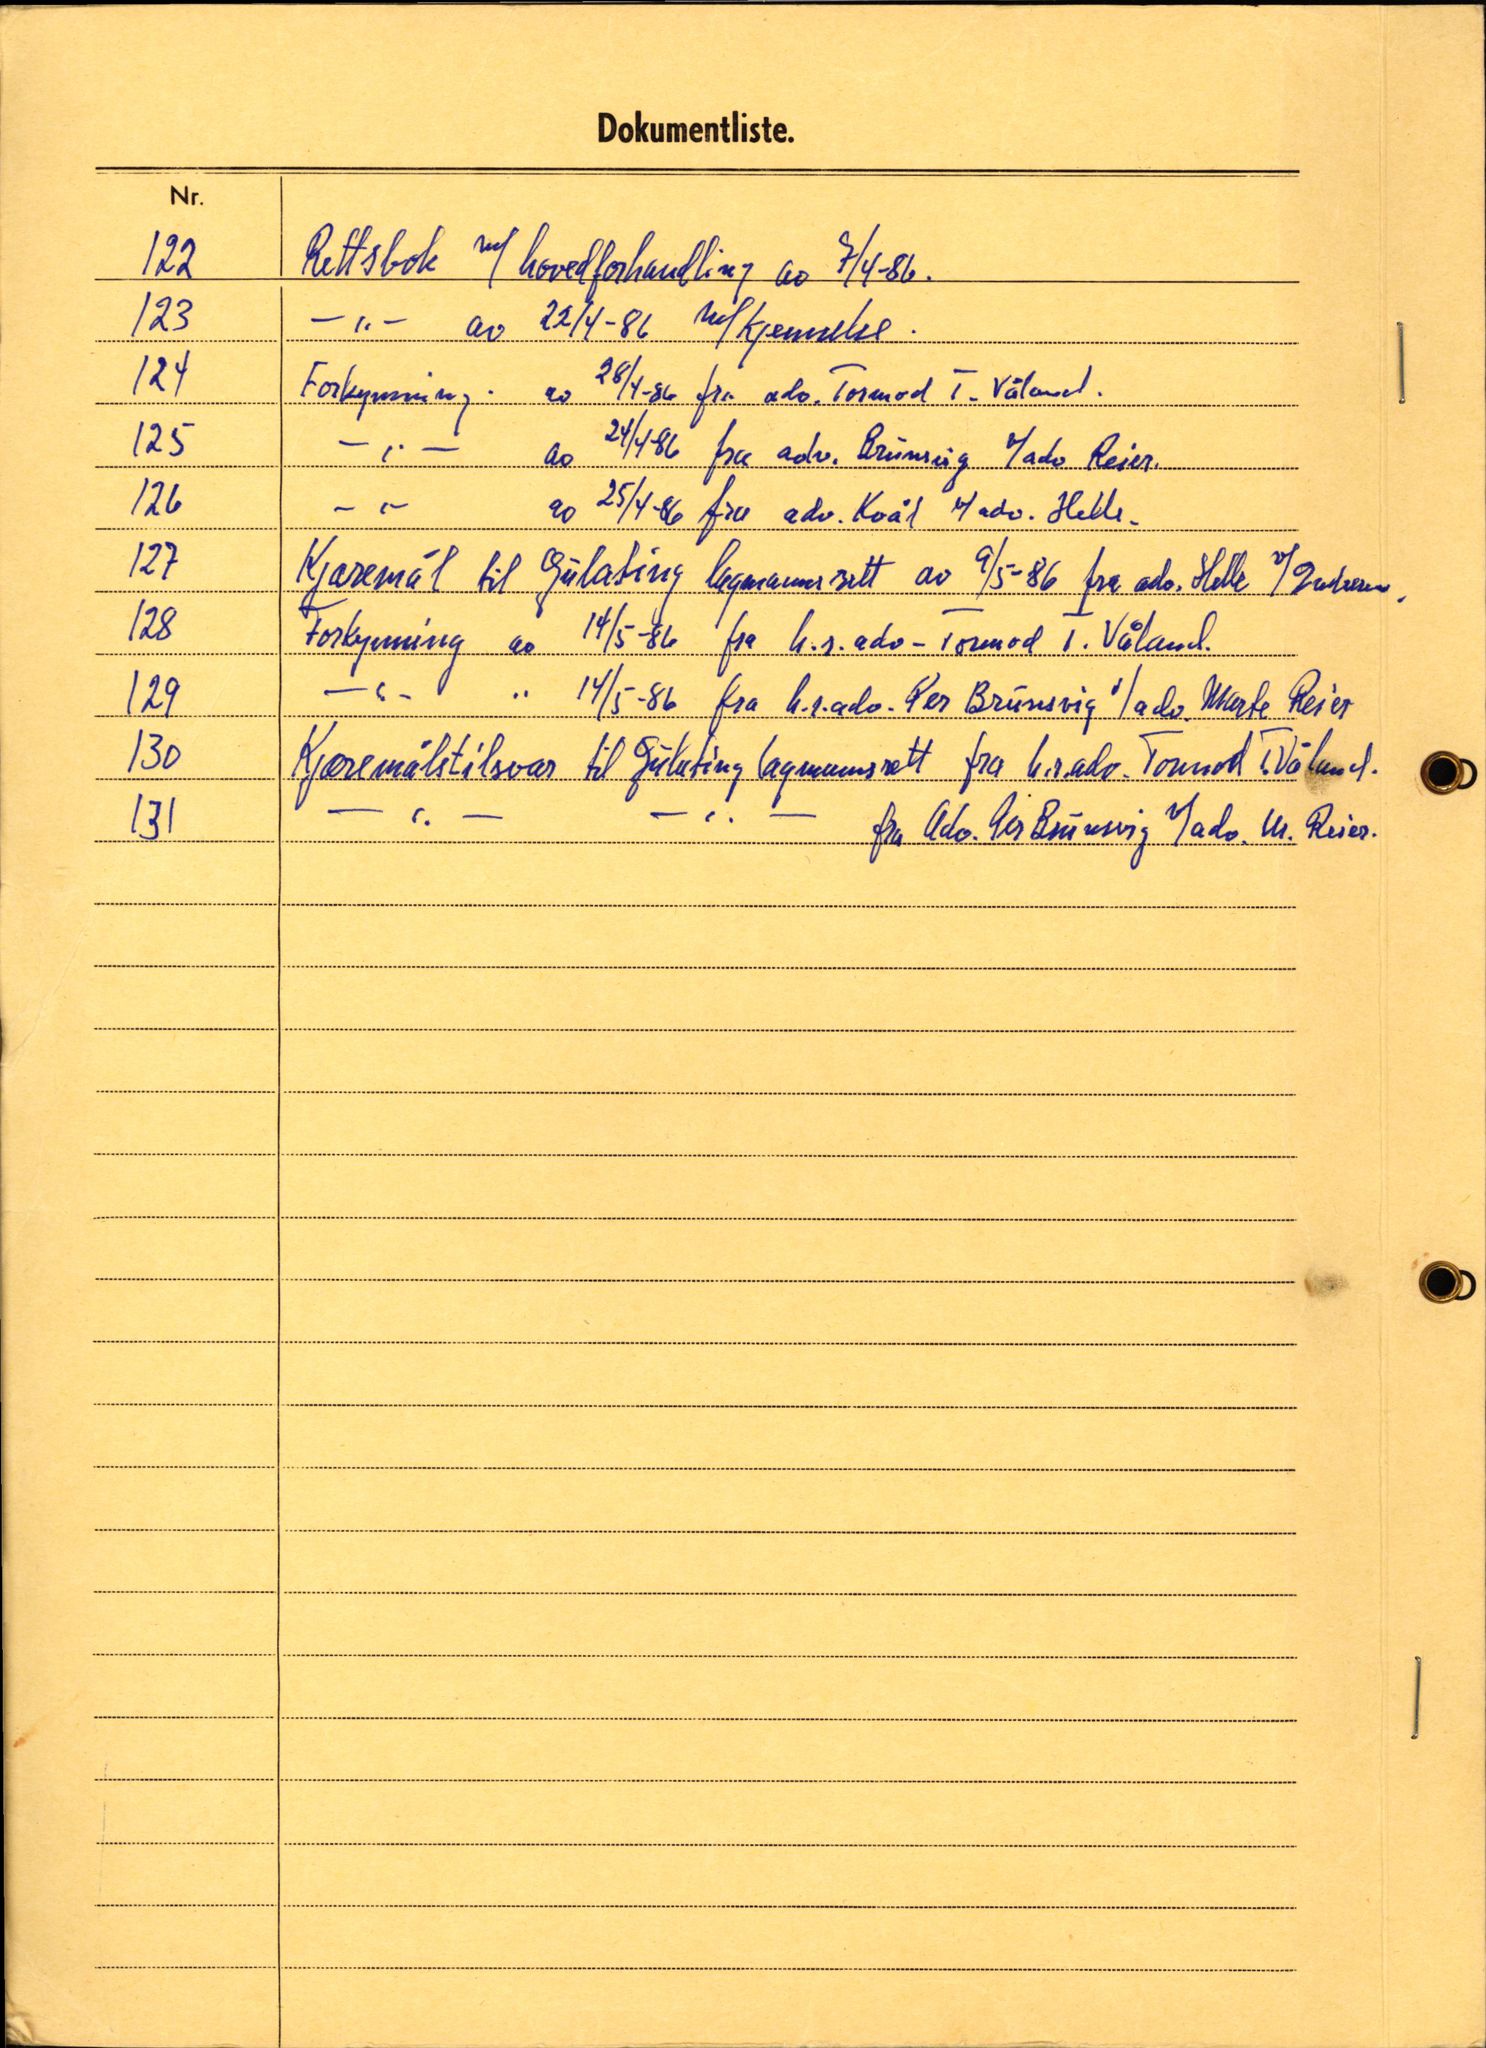 Dokumentliste.
Nr.
122 Rettsbok m/ hovedforhandling av 7/4-86.
123 -"- av 22/4-86 m/kjennelse.
124 Forkynning. av 28/4-86 fra adv. Tormod T. Våland.
125 -"- av 24/4-86 fra adv. Brunsvig v/adv Reier.
126 -"- av 25/4-86 fra adv. Kvål v/adv. Helle.
127 Kjæremål til Gulating lagmannsrett av 9/5-86 fra adv. Helle v/
128 Forkynning av 14/5-86 fra h.r.adv- Tormod T. Våland.
129 -"- " 14/5-86 fra h.r.adv. Per Brunsvig v/adv. Marte Reier
130 Kjæremålstilsvar til Gulating lagmannsrett fra h.r.adv. Tormod T. Våland.
131 -"- -"- fra Adv. Per Brunsvig v/adv. M. Reier.